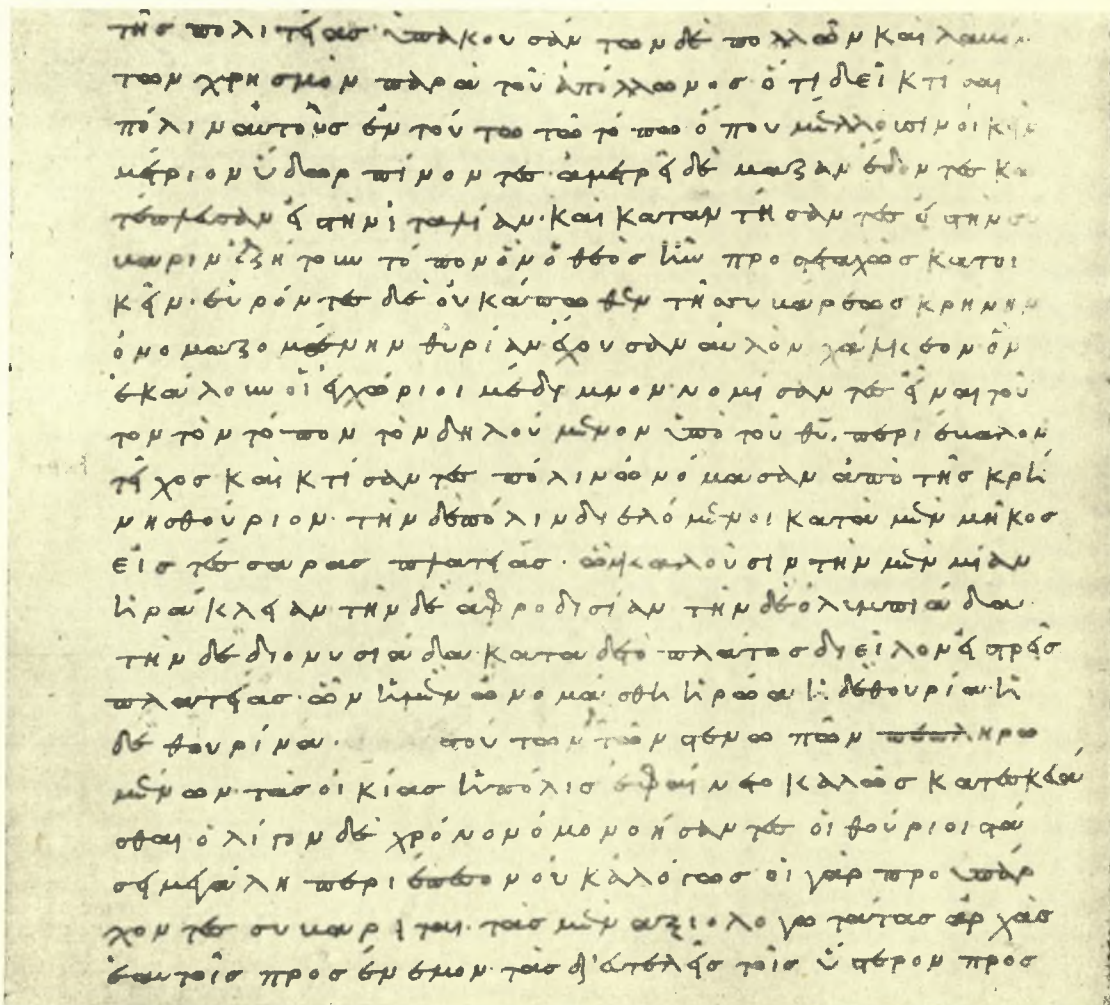 τῆς πολιτείας· ὑπακουσάντων δὲ πολλῶν καὶ λαβόν
των χρησμὸν παρὰ τοῦ ἀπόλλωνος ὅτι δεῖ κτίσαι
πόλιν αὐτοὺς ἐν τούτω τῶ τόπω ὅπου μέλλουσιν οἰκεῖν
μέτριον ὕδωρ πίνοντες· ἀμετρεὶ δὲ μάζαν ἔδοντες κα
τέπλευσαν εἰς τὴν ἰταλίαν· καὶ καταντήσαντες εἰς τὴν σύ
βαριν ἐζήτουν τὸ πον ὃν ὁ θεὸς ἦν προστεταχὼς κατοι
κεῖν· εὑρόντες δὲ οὐκ ἄπωθεν τῆς συβάρεως κρήνην
ὀνομαζομένην θυρίαν ἔχουσαν αὐλὸν χάλκεον ὃν
ἐκάλουν οἱ ἐγχώριοι μέδιμνον νομίσαντες εἶναι τοῦ
τον τὸν τόπον τὸν δηλούμενον ὑπὸ τοῦ θυ, περιέβαλον
τεῖχος καὶ κτίσαντες πόλιν ὠνόμασαν ἀπὸ τῆς κρή
νης θούριον· τὴν δὲ πόλιν διελόμενοι κατὰ μὲν μῆκος
εἰς τέσσαρας πλατείας· ὧν καλοῦσιν τὴν μὲν μίαν
ἡράκλειαν τὴν δὲ ἀφροδισίαν τὴν δὲ ὀλυμπιάδα·
τὴν δὲ διονυσιάδα· κατὰ δὲ τὸ πλάτος διεῖλον εἰς τρεῖς
πλατείας· ὧν ἡ μὲν ὠνομάσθη ἡρώα ἡ δὲ θουρία· ἡ
δὲ θουρίνα· τούτων τῶν στενωπῶν πεπληρω
μένων τὰς οἰκίας ἡ πόλις ἐφαίνετο καλῶς κατεσκευά
σθαι ὀλίγον δὲ χρόνον ὁμονοήσαντες οἱ θούριοι στά
σει μεγάλη περιέπεσον οὐκ ἀλόγως οἱ γὰρ προυπάρ
χοντες συβαρῖται· τὰς μὲν ἀξιολογωτάτας ἀρχὰς
ἑαυτοῖς προσένεμον· τὰς δ' εὐτελεῖς τοῖς ὕστερον προσ